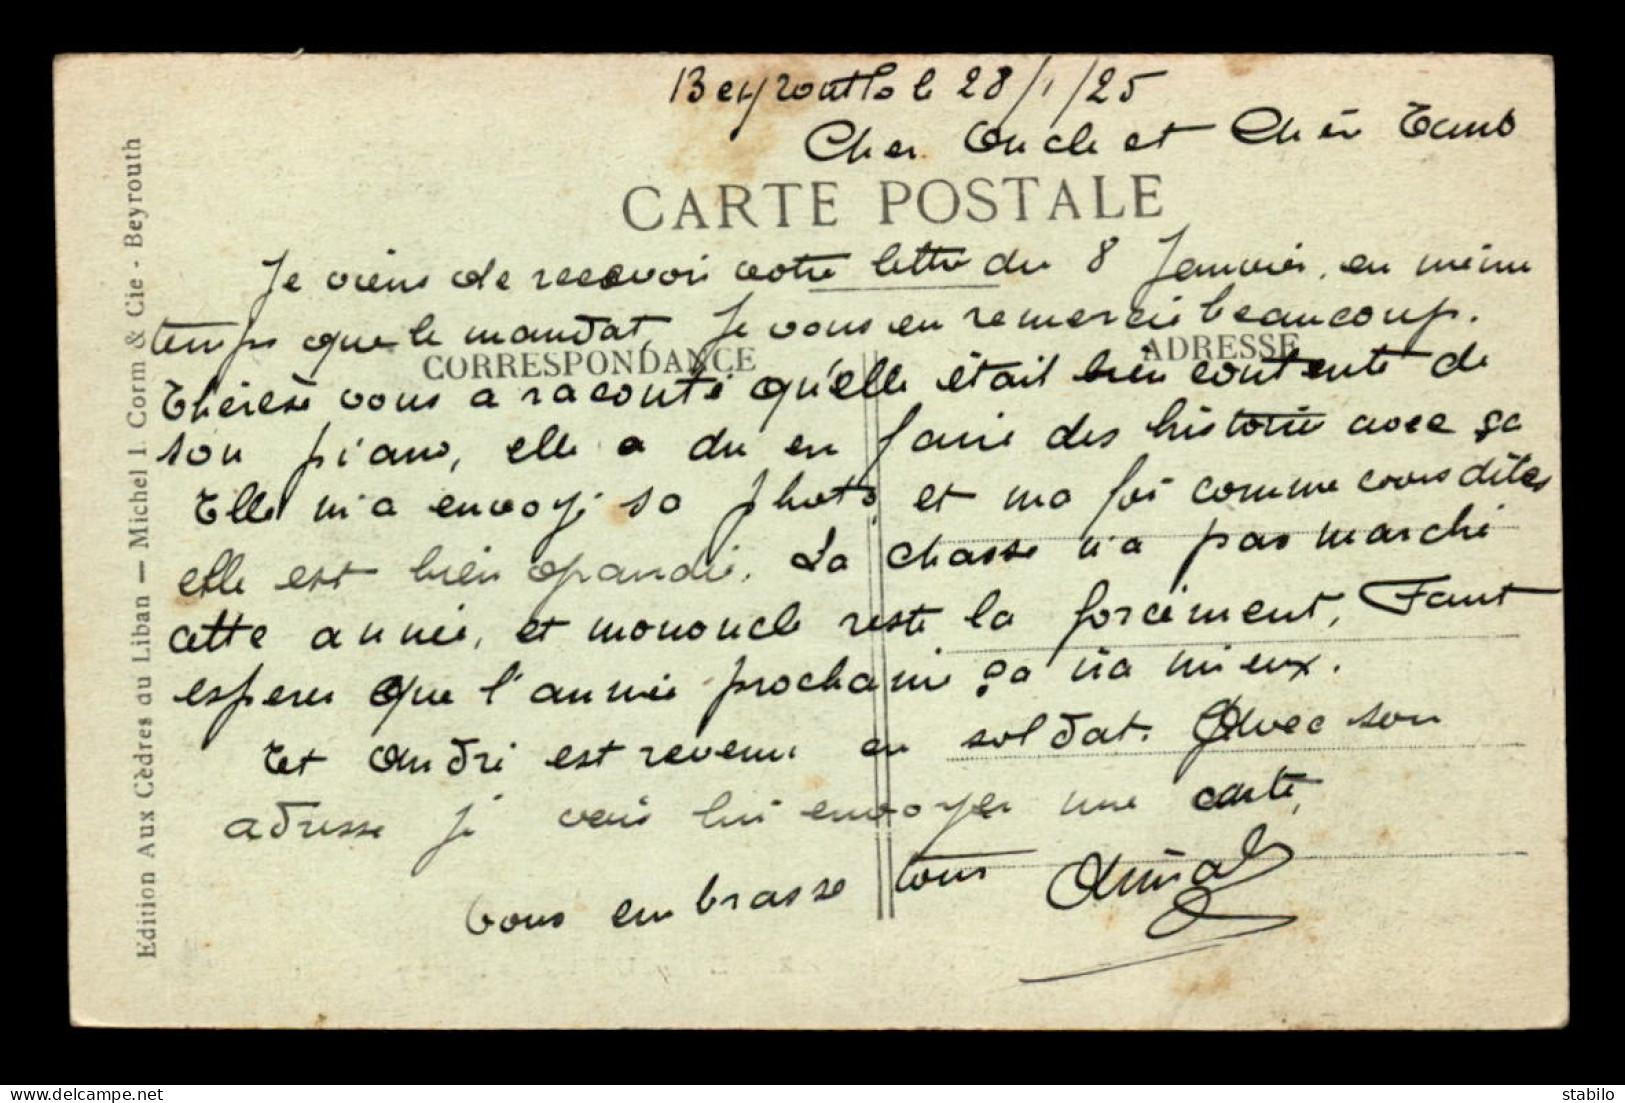 Beyrouth le 28/1/25
Cher Oncle et Chère Tante
CARTE POSTALE
Je viens de recevoir votre lettre du 8 Janvier, en même
temps que le mandat, Je vous en remercie beaucoup.
CORRESPONDANCE
ADRESSE
Thérèse vous a raconté qu'elle était bien contente de
son piano, elle a du en faire des histoire avec ça
Elle m'a envoyé sa photo, et ma foi comme vous dites
elle est bien grandie. La chasse n'a pas marché
cette année, et mononcle reste la forcement, Faut
esperer que l'année prochaine ça ira mieux.
Et André est revenu en soldat. Avec son
adresse je vais lui envoyer une carte,
Vous embrasse tous
Edition Aux Cèdres du Liban — Michel I. Corm & Cie - Beyrouth
stabilo